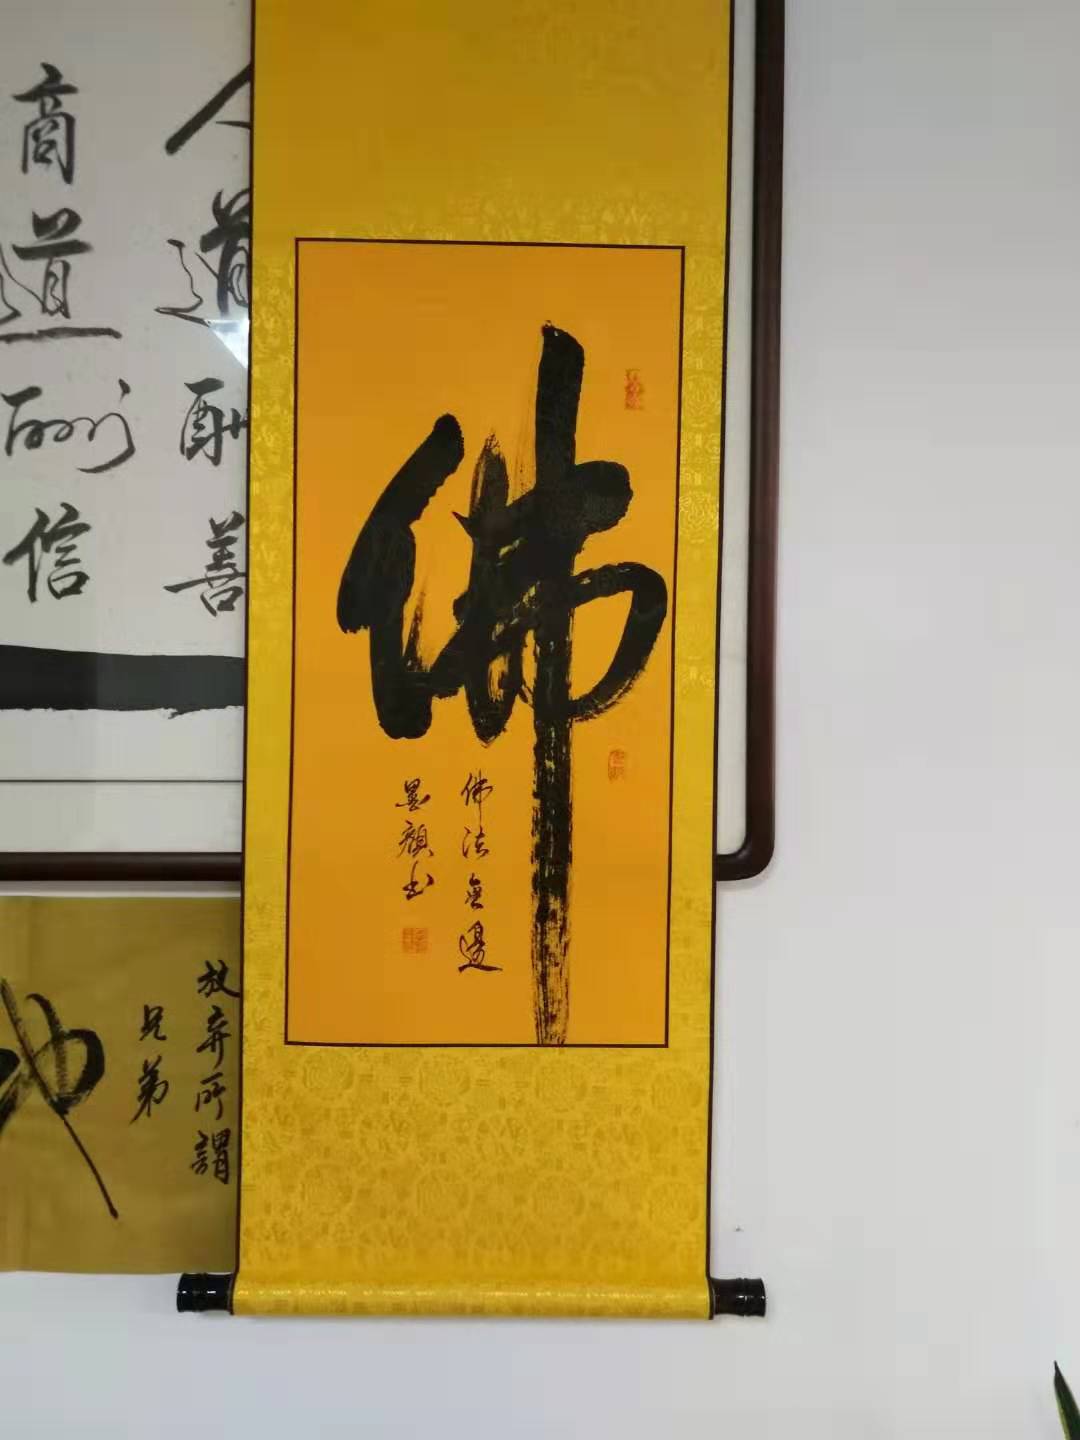 佛
佛法無邊
墨顏书
人道酬善
商道酬信
放弃所謂
兄弟